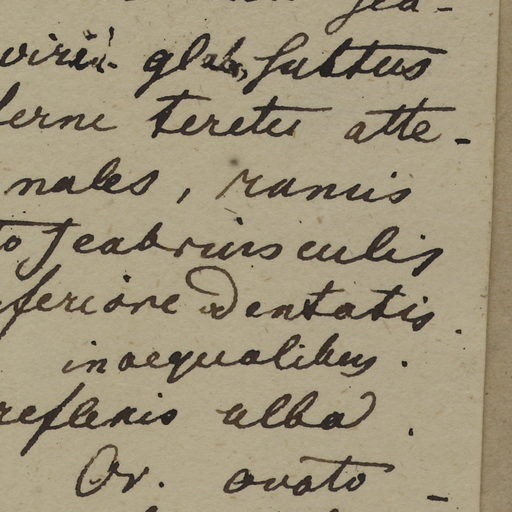 glab, subtus
ferne teretes atte-
nales, ramis
to scabriusculis
feriore dentatis.
inaequalibus.
reflexis alba.
Ov. ovato-